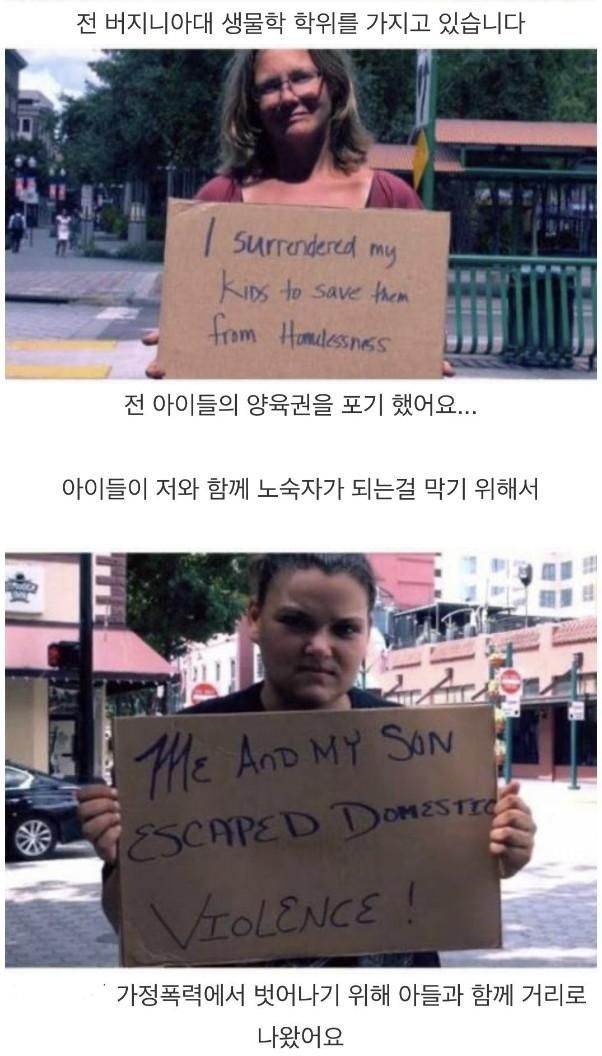 전 버지니아대 생물학 학위를 가지고 있습니다
I surrendered my
KIDS to save them
from Homelessness
전 아이들의 양육권을 포기 했어요...
아이들이 저와 함께 노숙자가 되는걸 막기 위해서
ME AND MY SON
ESCAPED DOMESTIC
VIOLENCE!
가정폭력에서 벗어나기 위해 아들과 함께 거리로
나왔어요